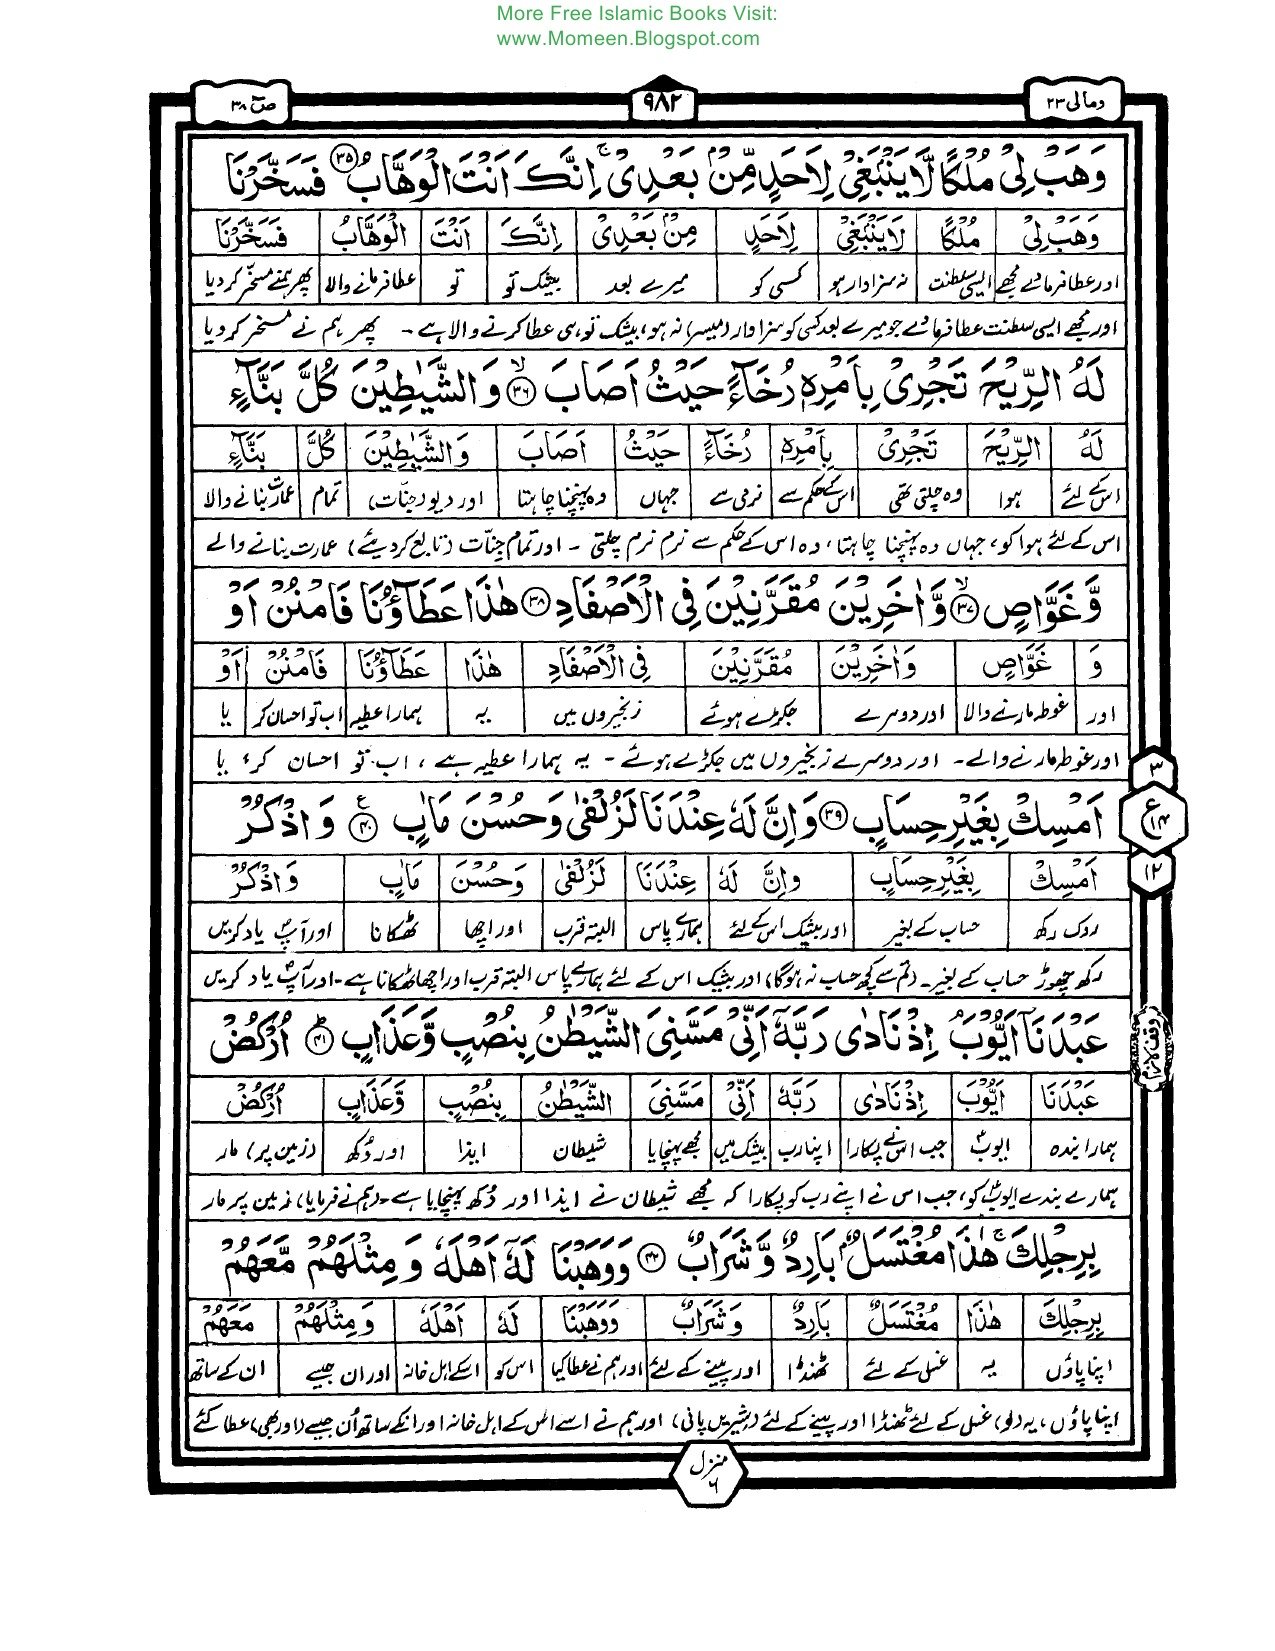 More Free Islamic Books Visit:
www.Momeen.Blogspot.com
ومالی ۲۳
۹۸۲
صٓ ۳۸
وَهَبْ لِیْ مُلْكًا لَّا یَنْۢبَغِیْ لِاَحَدٍ مِّنْۢ بَعْدِیْ ۚ اِنَّكَ اَنْتَ الْوَهَّابُ ۳۵ فَسَخَّرْنَا
وَهَبْ لِیْ مُلْكًا لَا یَنْۢبَغِیْ لِاَحَدٍ مِنْۢ بَعْدِیْ اِنَّكَ اَنْتَ الْوَهَّابُ فَسَخَّرْنَا
اور عطا فرما دے مجھے ایسی سلطنت نہ سزاوار ہو کسی کو میرے بعد بیشک تو تو عطا فرمانے والا پھر ہم نے مسخر کر دیا
اور مجھے ایسی سلطنت عطا فرما دے جو میرے بعد کسی کو سزاوار (میسر) نہ ہو، بیشک تو ہی عطا کرنے والا ہے ۔ پھر ہم نے مسخر کر دیا
لَهُ الرِّیْحَ تَجْرِیْ بِاَمْرِهٖ رُخَآءً حَیْثُ اَصَابَ ۙ ۳۶ وَ الشَّیٰطِیْنَ كُلَّ بَنَّآءٍ
لَهُ الرِّیْحَ تَجْرِیْ بِاَمْرِهٖ رُخَآءً حَیْثُ اَصَابَ وَالشَّیٰطِیْنَ كُلَّ بَنَّآءٍ
اس کے لئے ہوا وہ چلتی تھی اس کے حکم سے نرمی سے جہاں وہ پہنچنا چاہتا اور دیو (جنّات) تمام عمارت بنانے والا
اس کے لئے ہوا کو، جہاں وہ پہنچنا چاہتا، وہ اس کے حکم سے نرم نرم چلتی ۔ اور تمام جنّات (تابع کر دیئے) عمارت بنانے والے
وَّ غَوَّاصٍ ۙ ۳۷ وَّ اٰخَرِیْنَ مُقَرَّنِیْنَ فِی الْاَصْفَادِ ۳۸ هٰذَا عَطَآؤُنَا فَامْنُنْ اَوْ
وَ غَوَّاصٍ وَاٰخَرِیْنَ مُقَرَّنِیْنَ فِی الْاَصْفَادِ هٰذَا عَطَآؤُنَا فَامْنُنْ اَوْ
اور غوطہ مارنے والا اور دوسرے جکڑے ہوئے زنجیروں میں یہ ہمارا عطیہ اب تو احسان کر یا
اور غوطہ مارنے والے۔ اور دوسرے زنجیروں میں جکڑے ہوئے ۔ یہ ہمارا عطیہ ہے، اب تو احسان کر یا
۳
ع
۱۴
۱۲
اَمْسِكْ بِغَیْرِ حِسَابٍ ۳۹ وَ اِنَّ لَهٗ عِنْدَنَا لَزُلْفٰی وَ حُسْنَ مَاٰبٍ ۴۰ ع وَ اذْكُرْ
اَمْسِكْ بِغَیْرِ حِسَابٍ وَاِنَّ لَهٗ عِنْدَنَا لَزُلْفٰی وَحُسْنَ مَاٰبٍ وَاذْكُرْ
روک رکھ حساب کے بغیر اور بیشک اس کے لئے ہمارے پاس البتہ قرب اور اچھا ٹھکانا اور آپؐ یاد کریں
رکھ چھوڑ حساب کے بغیر ۔ (تم سے کچھ حساب نہ ہوگا) اور بیشک اس کے لئے ہمارے پاس البتہ قرب اور اچھا ٹھکانا ہے ۔ اور آپؐ یاد کریں
وقف لازم
عَبْدَنَاۤ اَیُّوْبَ ۘ اِذْ نَادٰی رَبَّهٗۤ اَنِّیْ مَسَّنِیَ الشَّیْطٰنُ بِنُصْبٍ وَّ عَذَابٍ ۴۱ اُرْكُضْ
عَبْدَنَا اَیُّوْبَ اِذْ نَادٰی رَبَّهٗ اَنِّیْ مَسَّنِیَ الشَّیْطٰنُ بِنُصْبٍ وَّعَذَابٍ اُرْكُضْ
ہمارا بندہ ایوبؑ جب اس نے پکارا اپنا رب بیشک میں مجھے پہنچایا شیطان ایذا اور دُکھ (زمین پر) مار
ہمارے بندے ایوبؑ کو، جب اس نے اپنے رب کو پکارا کہ مجھے شیطان نے ایذا اور دُکھ پہنچایا ہے ۔ (ہم نے فرمایا) زمین پر مار
بِرِجْلِكَ ۚ هٰذَا مُغْتَسَلٌۢ بَارِدٌ وَّ شَرَابٌ ۴۲ وَ وَهَبْنَا لَهٗۤ اَهْلَهٗ وَ مِثْلَهُمْ مَّعَهُمْ
بِرِجْلِكَ هٰذَا مُغْتَسَلٌ بَارِدٌ وَشَرَابٌ وَوَهَبْنَا لَهٗ اَهْلَهٗ وَمِثْلَهُمْ مَعَهُمْ
اپنا پاؤں یہ غسل کے لئے ٹھنڈا اور پینے کے لئے اور ہم نے عطا کیا اس کو اسکے اہل خانہ اور ان جیسے ان کے ساتھ
اپنا پاؤں، یہ (لو) غسل کے لئے ٹھنڈا اور پینے کے لئے (شیریں پانی)، اور ہم نے اسے اس کے اہل خانہ اور انکے ساتھ اُن جیسے (اور بھی) عطا کئے
منزل
۶